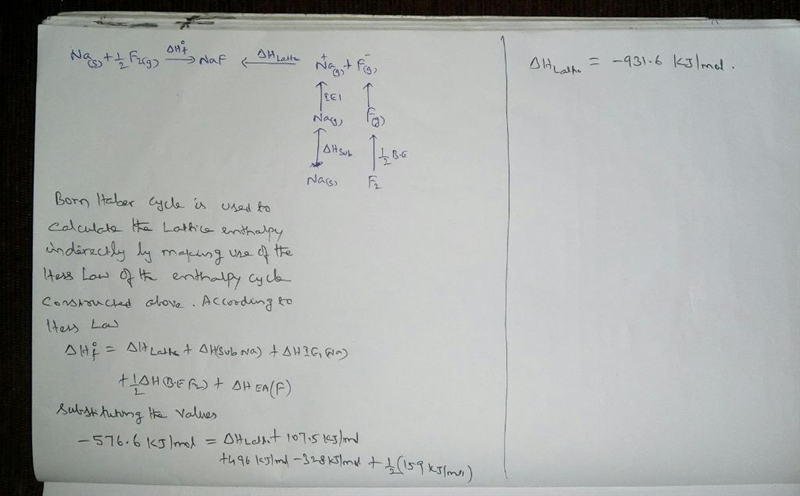 Na(s) + 1/2 F2(g) —ΔH°f→ NaF ←ΔHLatte— Na+(g) + F-(g)
↑IE1 ↑
Na(g) F(g)
↑ΔHsub ↑1/2 B.E
Na(s) F2
Born Haber Cycle is used to
Calculate the Lattice enthalpy
indirectly by making use of the
Hess Law of the enthalpy cycle
constructed above. According to
Hess Law
ΔH°f = ΔHLatte + ΔH(Sub Na) + ΔHIE1(Na)
+ 1/2 ΔH(B.E F2) + ΔH EA(F)
Substituting the values
-576.6 KJ/mol = ΔHLatte + 107.5 KJ/mol
+496 KJ/mol - 328 KJ/mol + 1/2 (159 KJ/mol)
ΔHLatte = -931.6 KJ/mol.